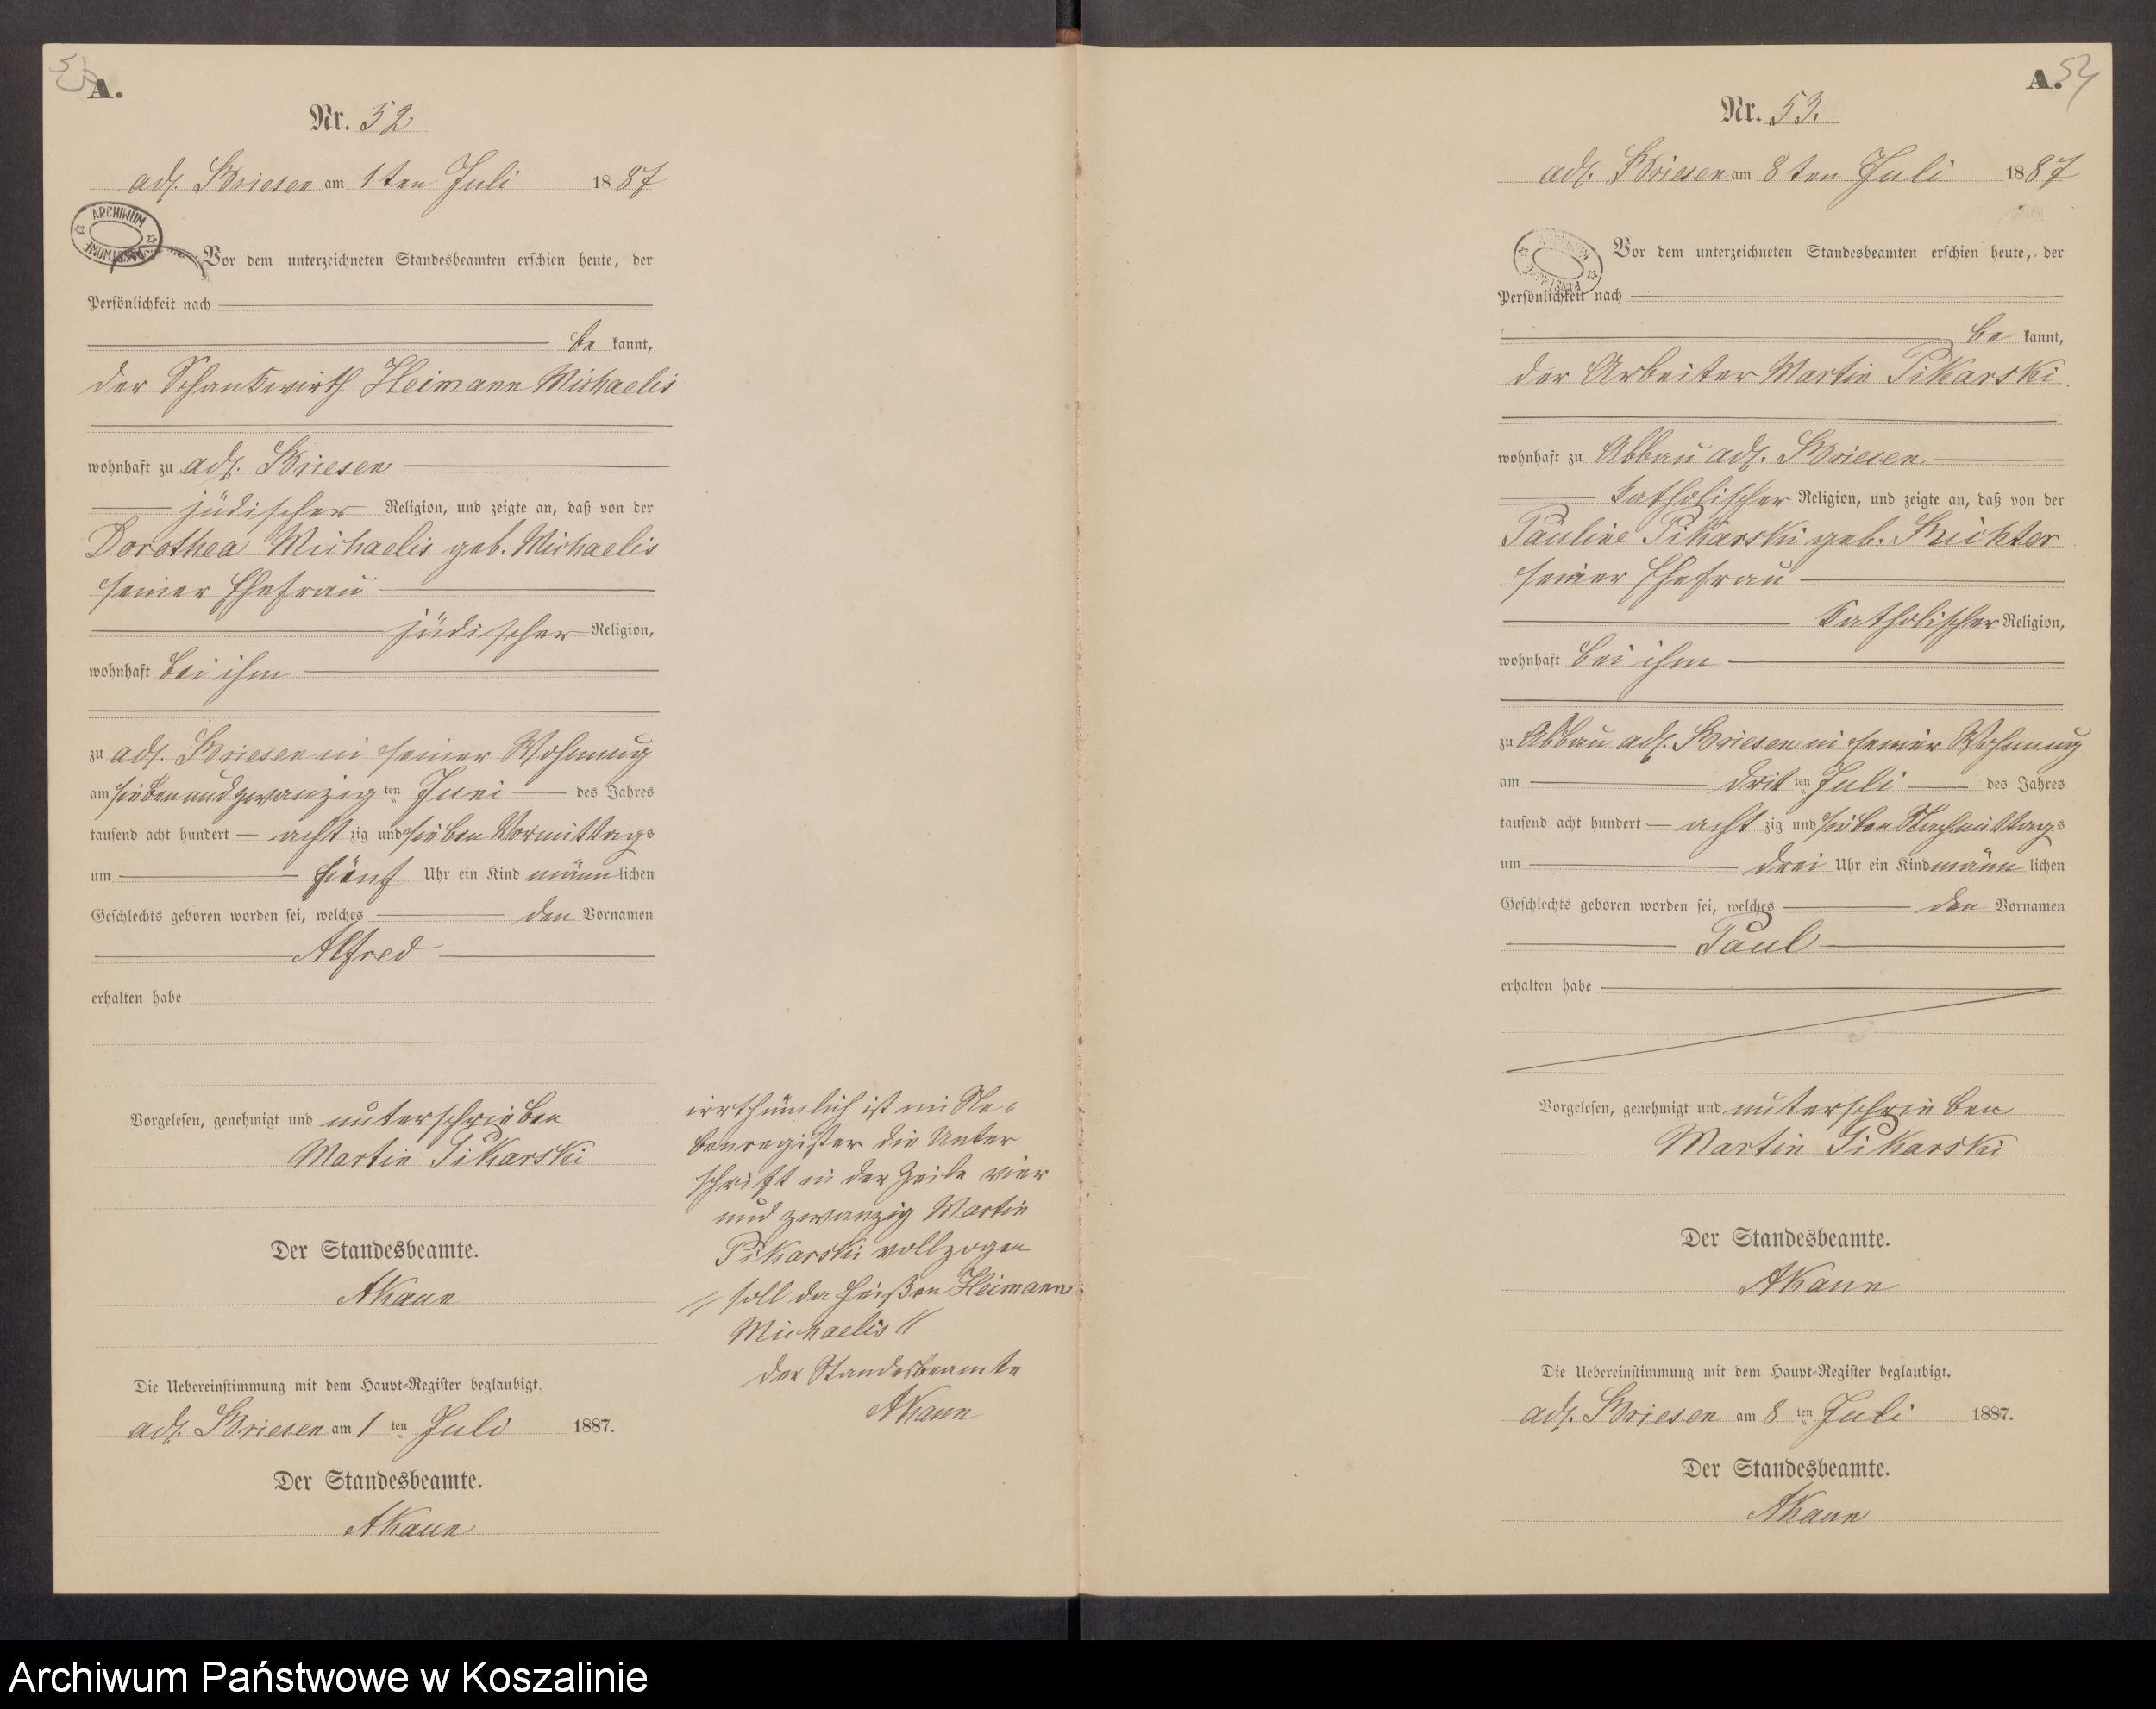 53
A.
Nr. 52
adl. Briesen am 1 ten Juli 1887
ARCHIWUM
PAŃSTWOWE
Vor dem unterzeichneten Standesbeamten erschien heute, der
Persönlichkeit nach
be kannt,
der Schankwirth Heimann Michaelis
wohnhaft zu adl. Briesen
jüdischer Religion, und zeigte an, daß von der
Dorothea Michaelis geb. Michaelis
seiner Ehefrau
jüdischer Religion,
wohnhaft bei ihm
zu adl. Briesen in seiner Wohnung
am siebenundzwanzig ten Juni des Jahres
tausend acht hundert acht zig und sieben Vormittags
um fünf Uhr ein Kind männ lichen
Geschlechts geboren worden sei, welches den Vornamen
Alfred
erhalten habe
Vorgelesen, genehmigt und unterschrieben
Martin Pikarski
Der Standesbeamte.
AKann
Die Uebereinstimmung mit dem Haupt-Register beglaubigt.
adl. Briesen am 1 ten Juli 1887.
Der Standesbeamte.
AKann
irrthümlich ist im Ne-
benregister die Unter
schrift in der Zeile vier
und zwanzig Martin
Pikarski vollzogen
// soll da heißen Heimann
Michaelis //
der Standesbeamte
AKann
A. 54
Nr. 53.
adl. Briesen am 8 ten Juli 1887
Vor dem unterzeichneten Standesbeamten erschien heute, der
Persönlichkeit nach
be kannt,
der Arbeiter Martin Pikarski
wohnhaft zu Abbau adl. Briesen
katholischer Religion, und zeigte an, daß von der
Pauline Pikarski geb. Richter
seiner Ehefrau
katholischer Religion,
wohnhaft bei ihm
zu Abbau adl. Briesen in seiner Wohnung
am drit ten Juli des Jahres
tausend acht hundert acht zig und sieben Nachmittags
um drei Uhr ein Kind männ lichen
Geschlechts geboren worden sei, welches den Vornamen
Paul
erhalten habe
Vorgelesen, genehmigt und unterschrieben
Martin Pikarski
Der Standesbeamte.
AKann
Die Uebereinstimmung mit dem Haupt-Register beglaubigt.
adl. Briesen am 8 ten Juli 1887.
Der Standesbeamte.
AKann
Archiwum Państwowe w Koszalinie